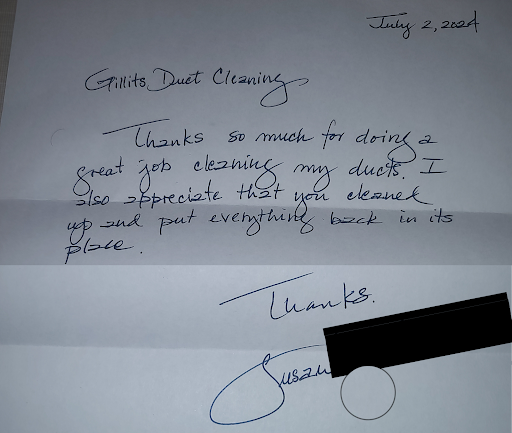 July 2, 2024
Gillits Duct Cleaning
Thanks so much for doing a
great job cleaning my ducts. I
also appreciate that you cleaned
up and put everything back in its
place.
Thanks.
Susan